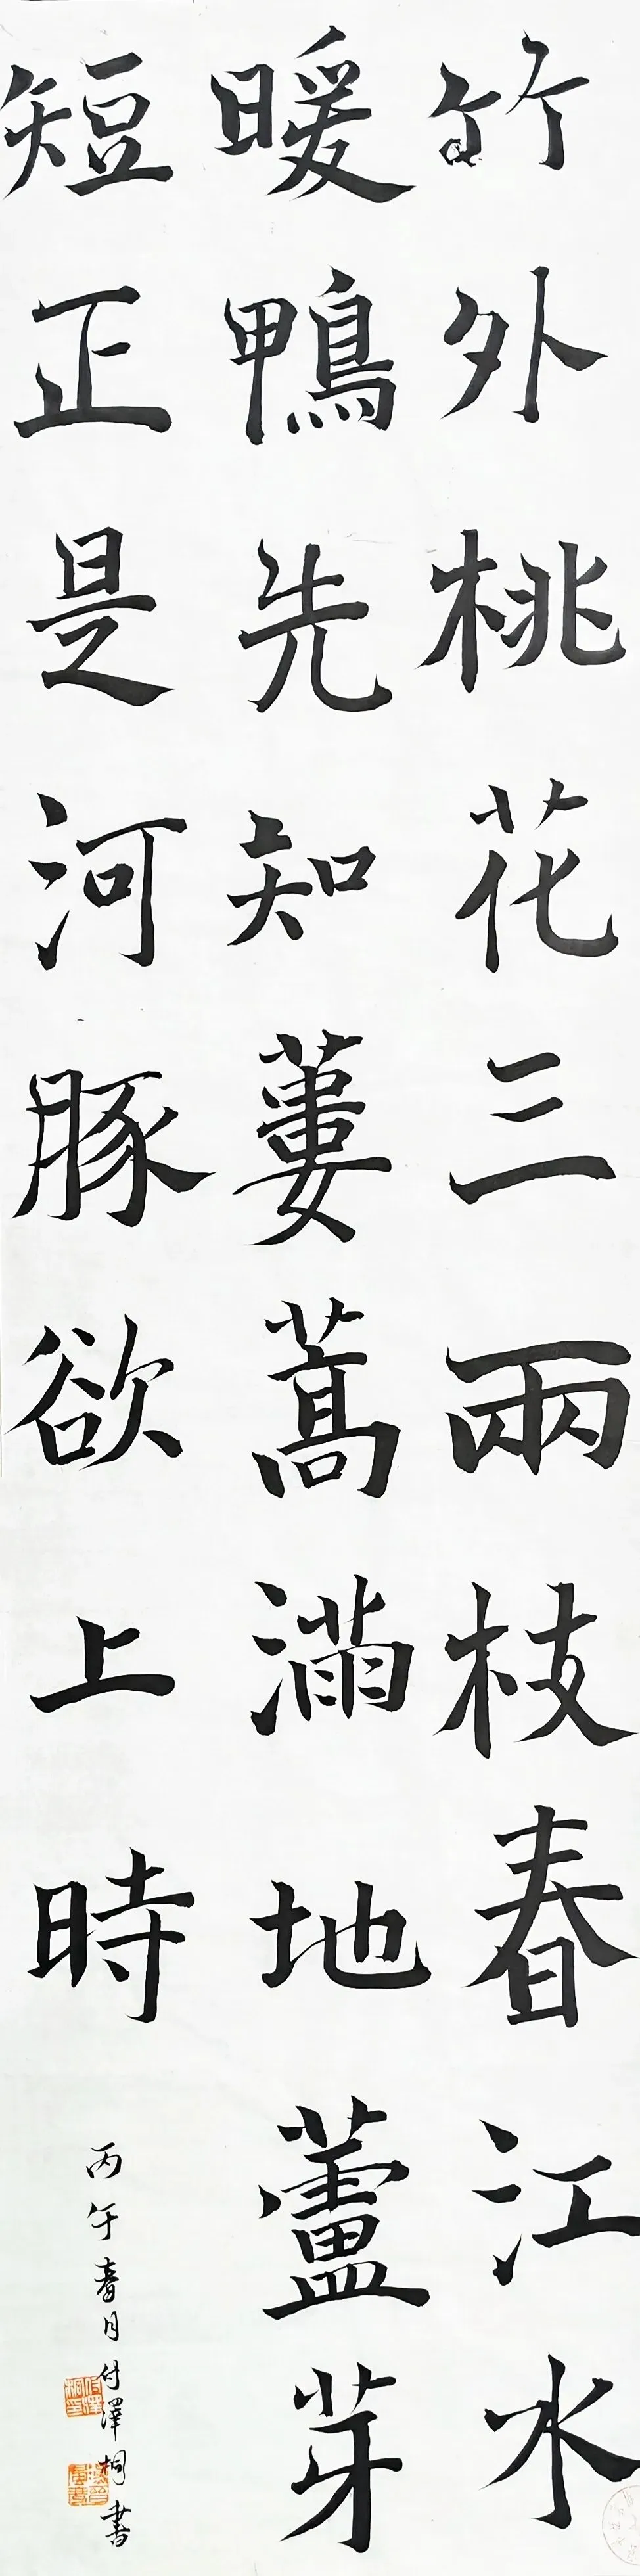 竹外桃花三兩枝春江水
暖鴨先知蔞蒿滿地蘆芽
短正是河豚欲上時
丙午春月付澤桐書
付澤桐印